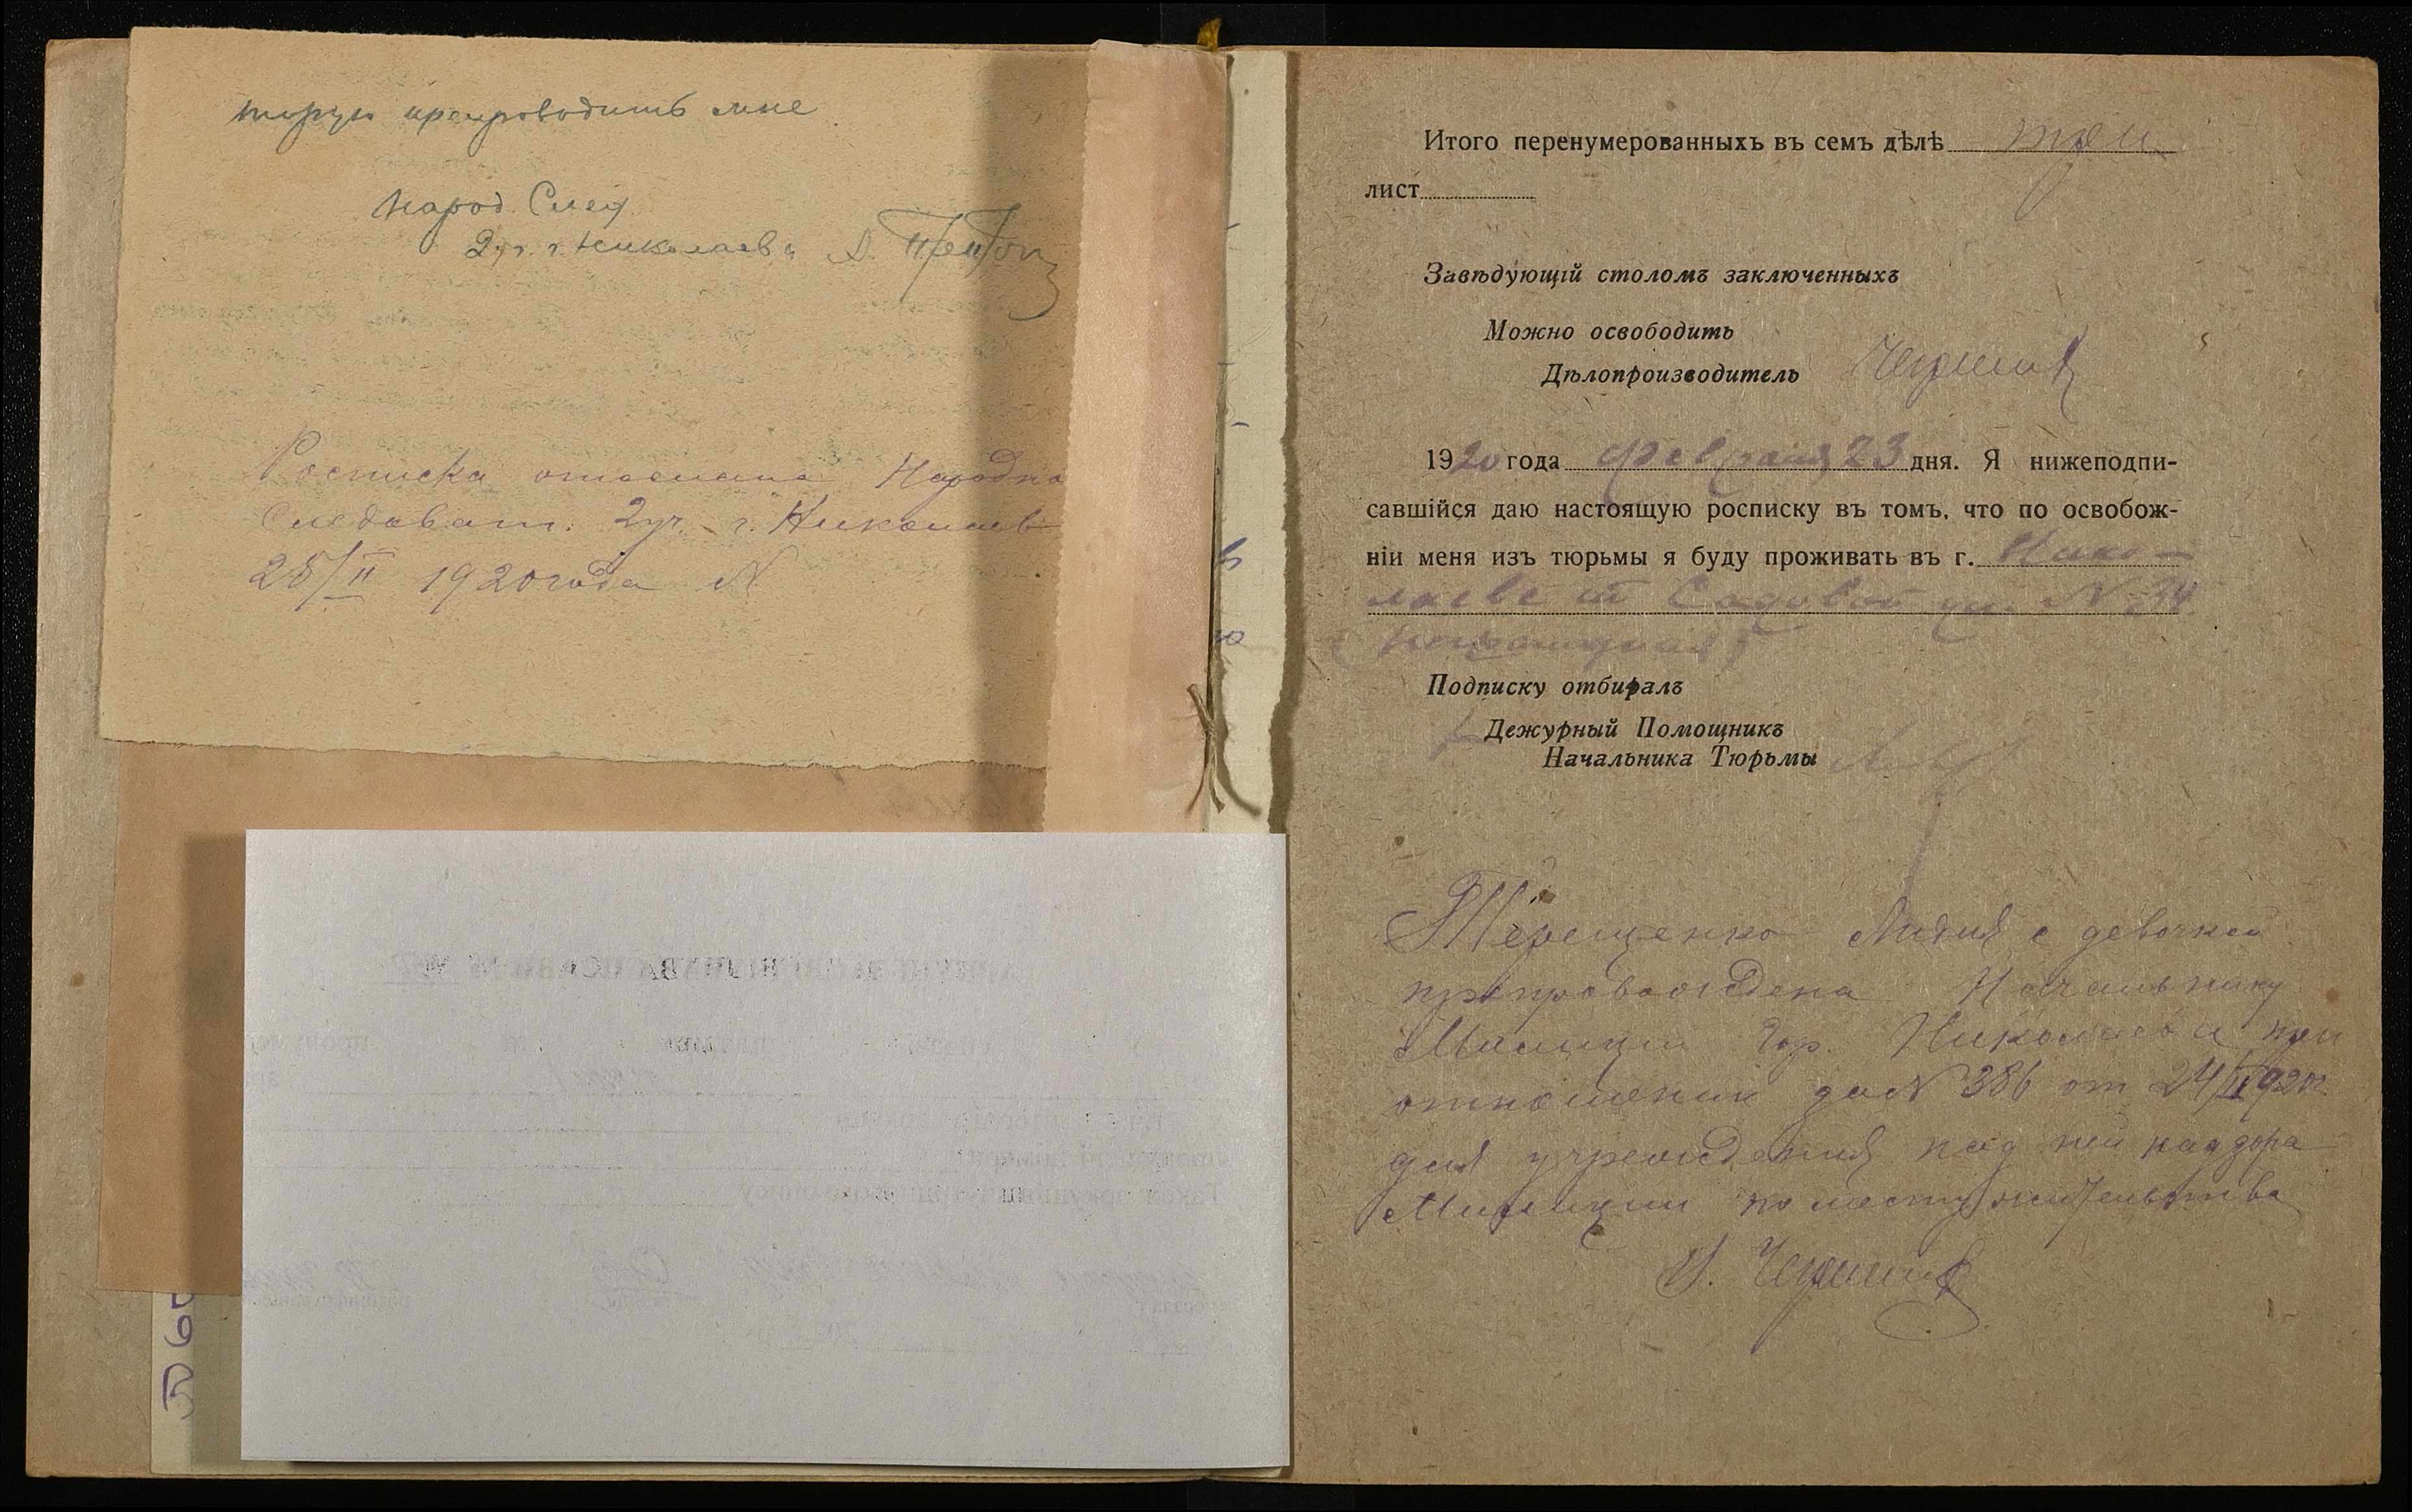 торую препроводить мне
Народ. След.
2 уч. г. Николаева
Росписка отослана Народно
Следоват. 2 уч. г. Николаев
28/II 1920 года №
Итого перенумерованныхъ въ семъ дѣлѣ три
лист
Завѣдующій столомъ заключенныхъ
Можно освободить
Дѣлопроизводитель
1920 года февраля 23 дня. Я нижеподпи-
савшійся даю настоящую росписку въ томъ, что по освобож-
ніи меня изъ тюрьмы я буду проживать въ г. Нико-
лаеве по Садовой ул. № 34
Подписку отбиралъ
Дежурный Помощникъ
Начальника Тюрьмы
Терещенко Лидия с девочкой
препровождена Начальнику
Милиции Гор. Николаева при
отношении за № 386 от 24/II 1920 г.
для учреждения над ней надзора
Милиции по месту жительства